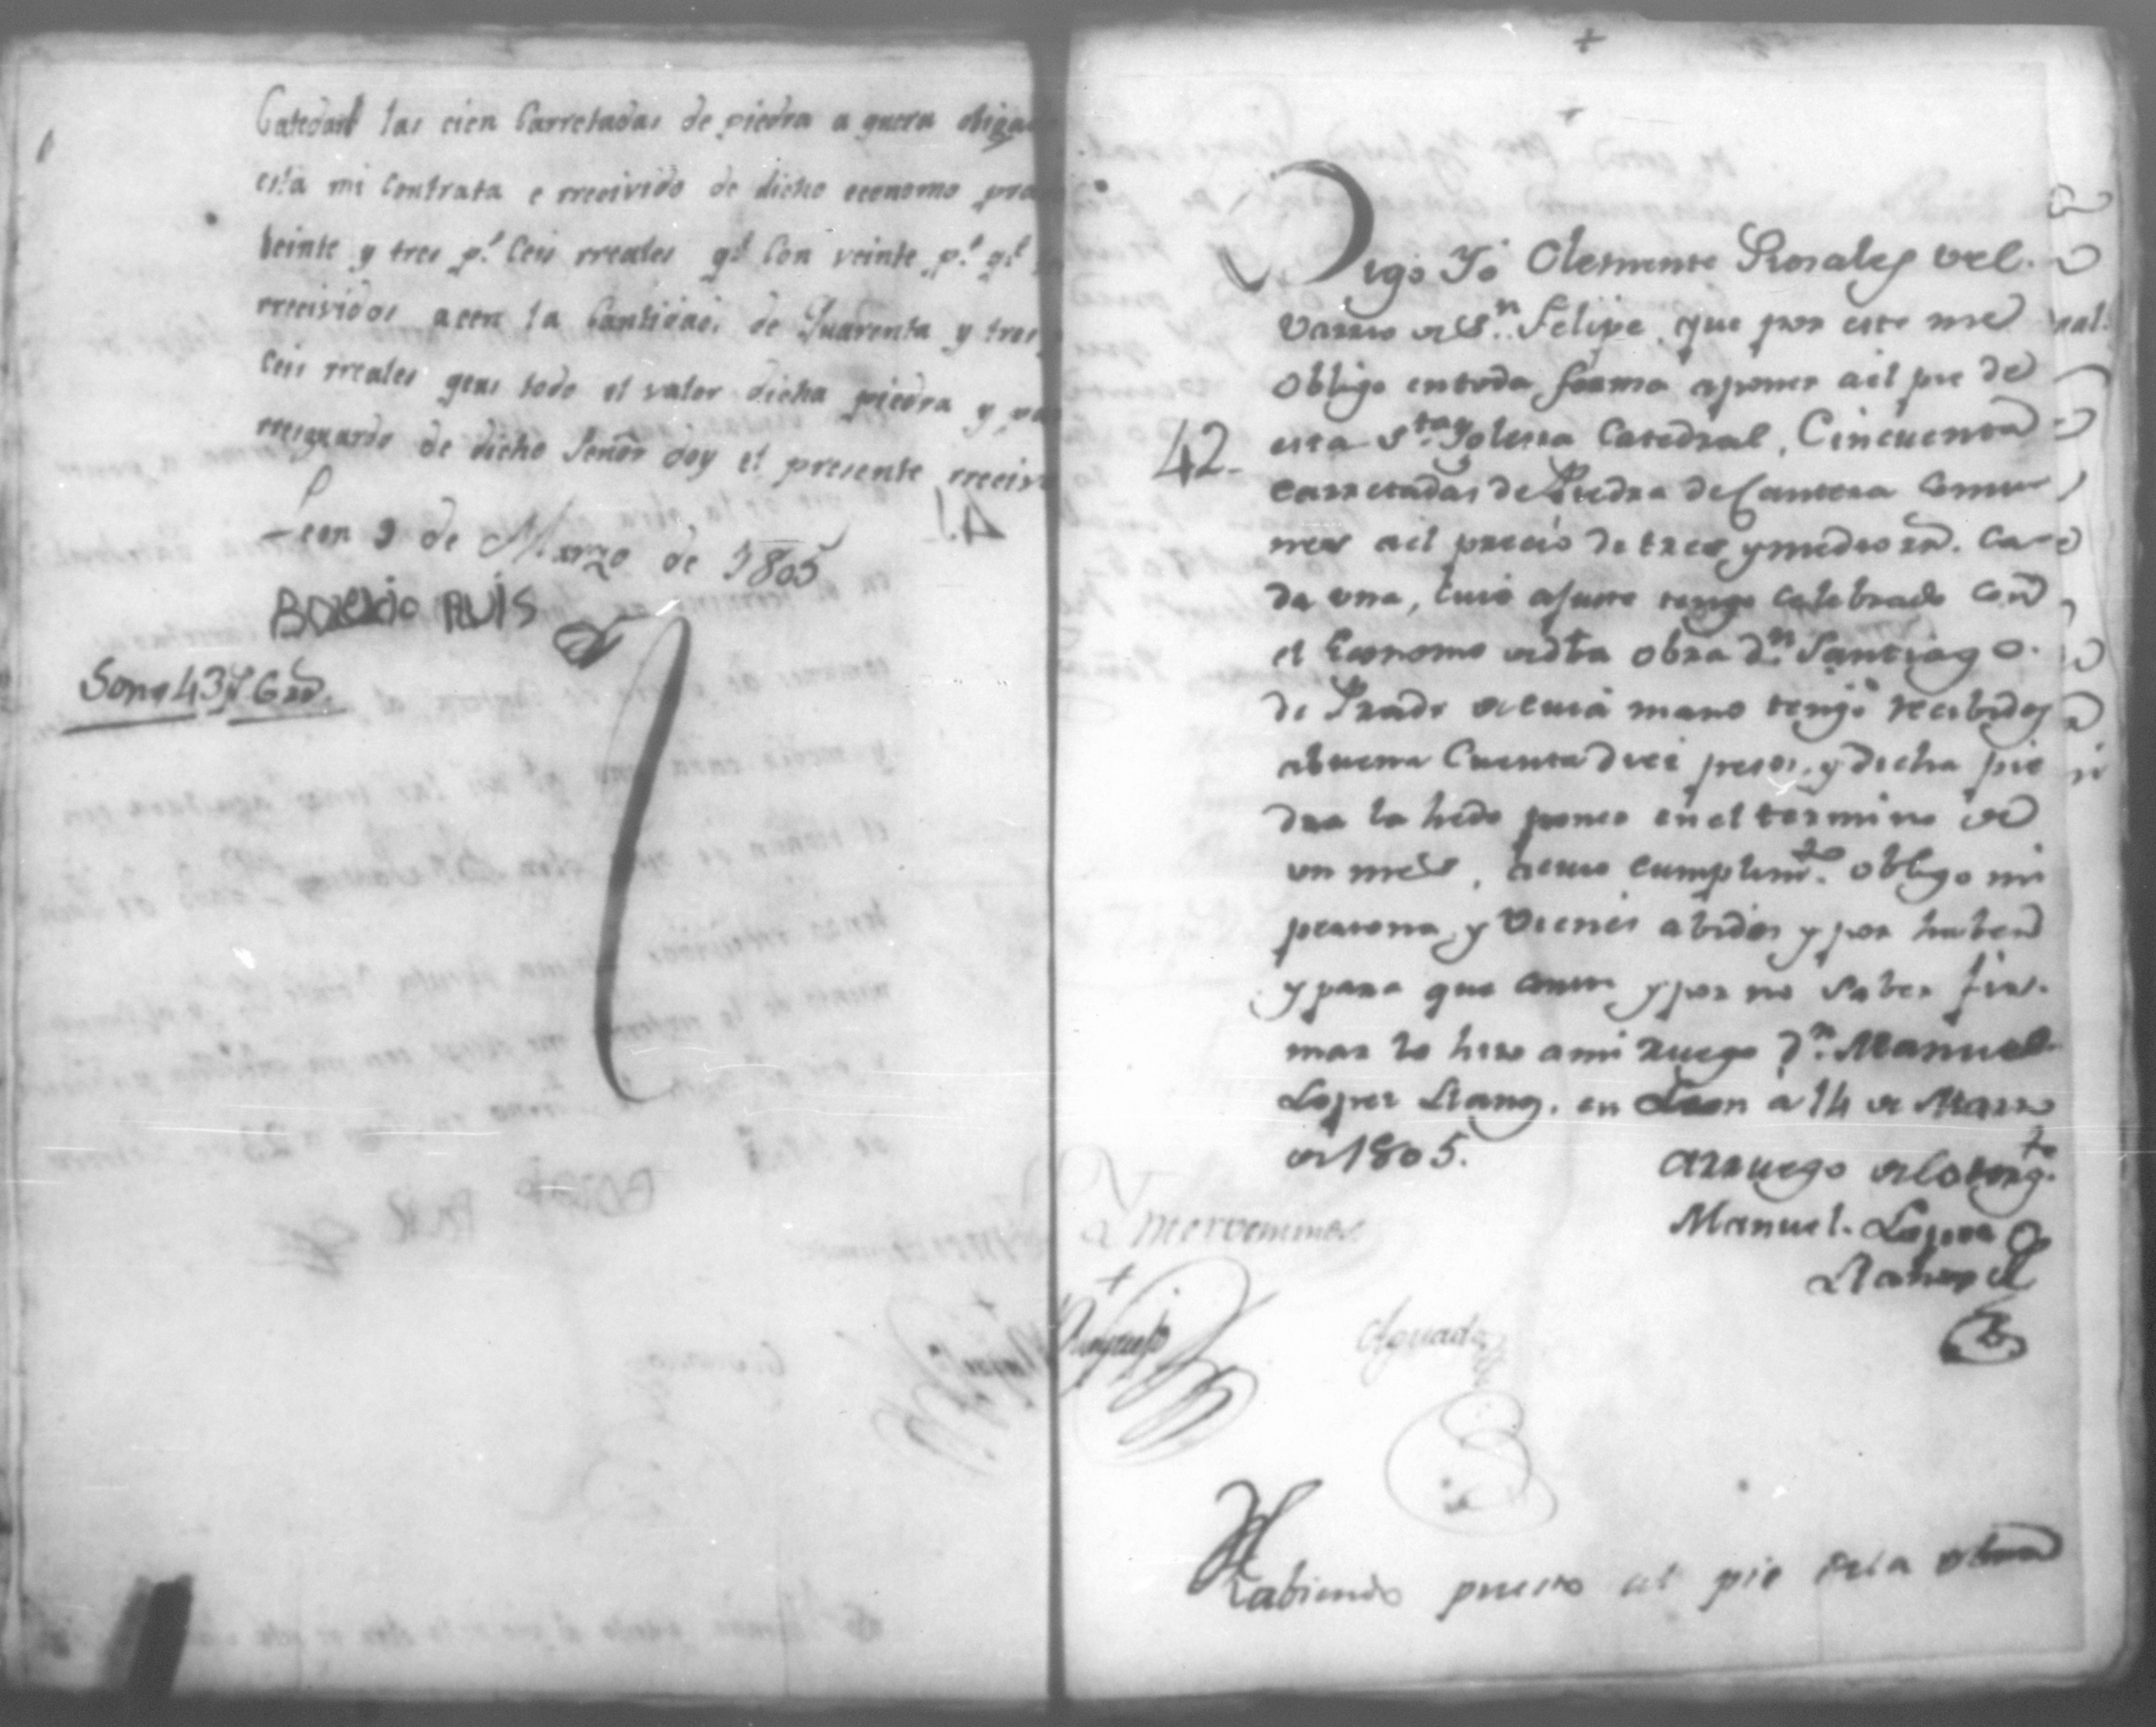 Catedarl las cien Carretadas de piedra a quera obiga
esta mi Contrata e rrecivido de dicho economo
Veinte y tres p.s Ceis rreales q.e Con veinte p.s q.e
rrecividos acen la Cantidad de Quarenta y tres
Ceis rreales qens todo el valor dicha piedra y
rresguardo de dicho Señor doy el presente rreciv
Leon 9 de Marzo de 1805
RUIS
Son 43 p.s 6 rr.
Digo Yo Clemente Rosales vel.
Varrio de S.n Felipe, que por este me
obligo en toda forma a poner a el pie de
42.
esta S.ta Yglesia Catedral, Cincuenta
Carretadas de Piedra de Cantera Comu
nes a el precio de tres y medio rr. Ca
da una, cuio ajuste tengo celebrado con
el Economo de dha obra D.n Santiago
de Prado de cuia mano tengo recibidos
a buena Cuenta diez pesos, y dicha pie
dra la hedo poner en el termino de
un mes, a cuio cumplim.to obligo mi
persona, y Vienes abidos y por haber
y para que conste y por no saber fir
mar lo hizo a mi ruego D.n Manuel
Lopez Llano, en Leon a 14 de Marzo
de 1805.
a rruego de lo otorg.te
Manuel Lopez
Aguado
Habiendo puesto al pie de la obra